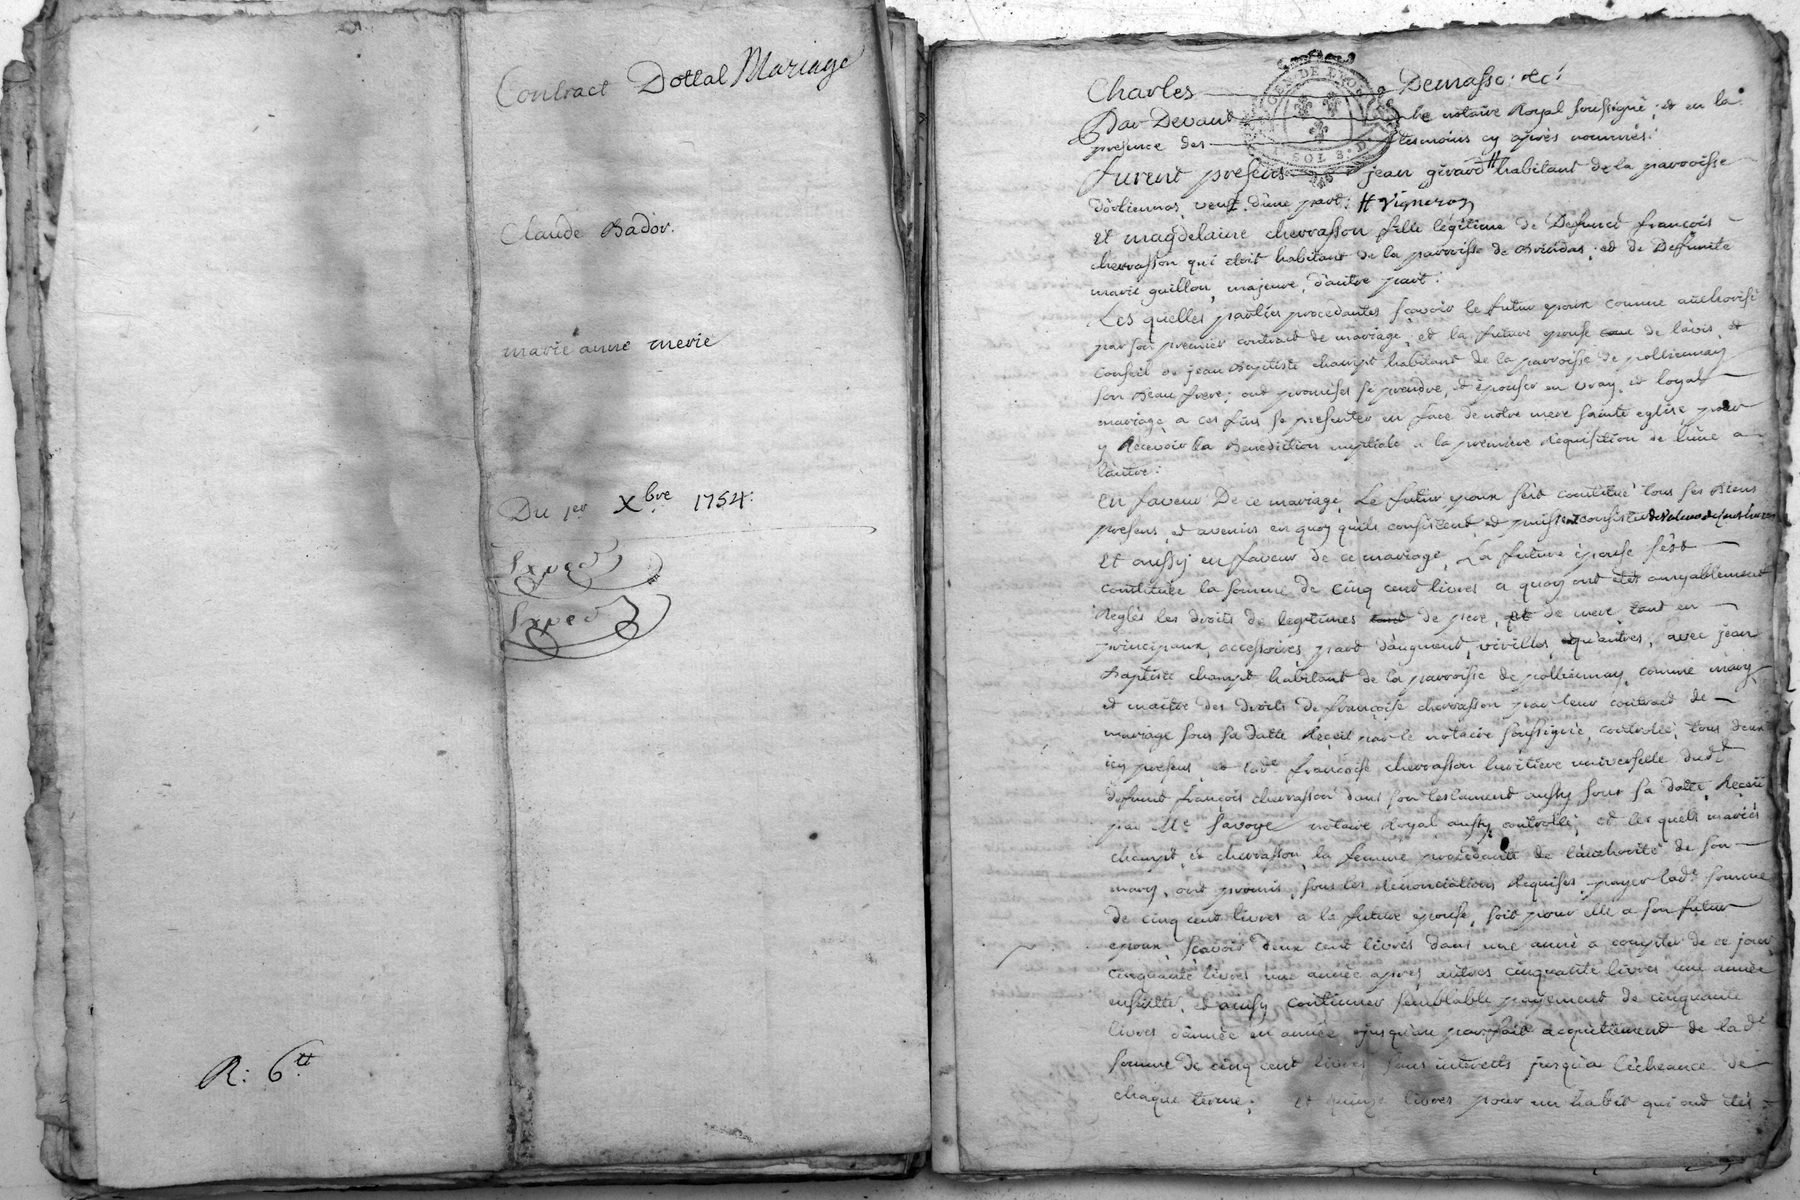 Contract Dottal Mariage
Claude Bador.
marie anne merie
Du 1er Xbre 1754:
Exped
Exped
R: 6tt
GEN. DE LYON
SOLS. D
Charles Demasso. &c:
Par Devant le notaire Royal soussigné; et en la
presence des tesmoins cy après nommés:
furent presens jean girard # habitant de la parroisse
d'orliennas, veuf d'une part: # Vigneron
Et magdelaine chervasson fille légitime de Deffunct françois
chervasson qui etoit habitant de la parroisse de Brindas; et de Deffunte
marie guillon, majeure, d'autre part:
Les quelles parties procedantes sçavoir le futur epoux comme authorisé
par son premier contrait de mariage, et la future epouse de l'avis et
Conseil de jean Baptiste champt habitant de la parroisse de pollionnay
son Beau frere; ont promises se prendre, et épouser en vray et loyal
mariage, a ces fins se presenter en face de notre mere sainte eglise pour
y Recevoir la Benediction nuptiale a la première Requisition de l'une a
l'autre:
En faveur De ce mariage, Le futur epoux s'est constitué tous ses Biens
presens, et avenirs en quoy quils consistent, et puissent consister
Et aussy en faveur de ce mariage, La future épouse s'est
constituée la somme de cinq cent livres a quoy ont etés amyablement
Reglés les droits de legitimes de pere, et de mere tant en
principaux, accessoires, part d'augment, virilles, qu'autres; avec jean
Baptiste champt habitant de la parroisse de pollionnay, comme mary
et maître des droits de françoise chervasson par leur contract de
mariage sous sa datte Reçeu par le notaire soussigné, controlle; tous deux
icy presens, et lade françoise chervasson heritiere universelle dudt
deffunt françois chervasson dans son testament aussy sous sa datte, Reçeu
par Me Savoye notaire Royal aussy controllé; et les quels mariés
champt, et chervasson, la femme procedante de l'authorité de son
mary, ont promis, sous les Renonciations Requises payer lade somme
de cinq cent livres a la future epouse, soit pour elle a son futur
epoux, sçavoir deux cent livres dans une année a compter de ce jour,
cinquante livres une année apres, autres cinquante livres une année
ensuitte, et ainsy continuer semblable payement de cinquante
livres d'année en année jusqu'au parfait acquittement de lade
somme de cinq cent livres sans interetts jusqu'a l'écheance de
chaque terme; Et quinze livres pour un habit qui ont étés